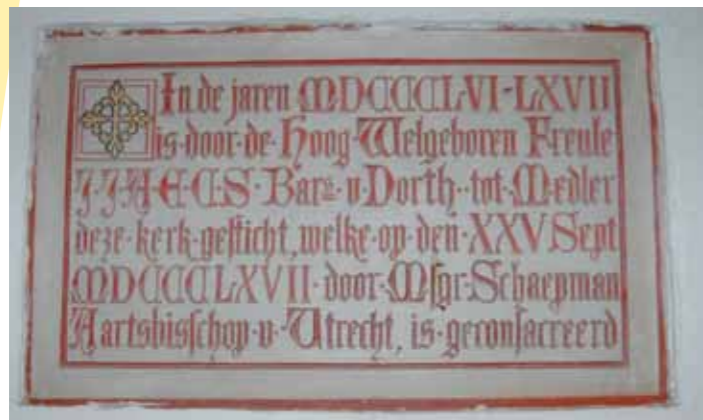 In de jaren MDCCCLVI-LXVII
is·door·de·Hoog·Welgeboren Freule
J·J·A·E·C·S·Barsse·v·Dorth··tot·Medler
deze·kerk·gesticht, welke·op·den·XXV Sept
MDCCCLXVII·door·Msgr·Schaepman
Aartsbisschop·v·Utrecht, is·geconsacreerd